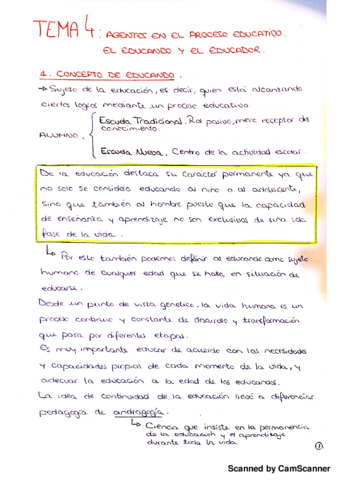 TEMA 4: AGENTES EN EL PROCESO EDUCATIVO.
EL EDUCANDO Y EL EDUCADOR.
1. CONCEPTO DE EDUCANDO.
→ Sujeto de la educación, es decir, quien está alcanzando
ciertos logros mediante un proceso educativo
Escuela Tradicional. Rol pasivo, mero receptor del
conocimiento
ALUMNO
Escuela Nueva. Centro de la actividad escolar
De la educación destaca su carácter permanente ya que
no solo se considera educando al niño o al adolescente,
sino que también al hombre puesto que la capacidad
de enseñanza y aprendizaje no son exclusivos de una sola
fase de la vida.
↳ Por esto también podemos definir al educando como sujeto
humano de cualquier edad que se halla en situación de
educarse.
Desde un punto de vista genético, la vida humana es un
proceso continuo y constante de desarrollo y transformación
que pasa por diferentes etapas.
Es muy importante educar de acuerdo con las necesidades
y capacidades propias de cada momento de la vida, y
adecuar la educación a la edad de los educandos.
La idea de continuidad de la educación llevó a diferenciar
pedagogía de andragogía.
↳ Ciencia que insiste en la permanencia
de la educación y el aprendizaje
durante toda la vida.
1
Scanned by CamScanner